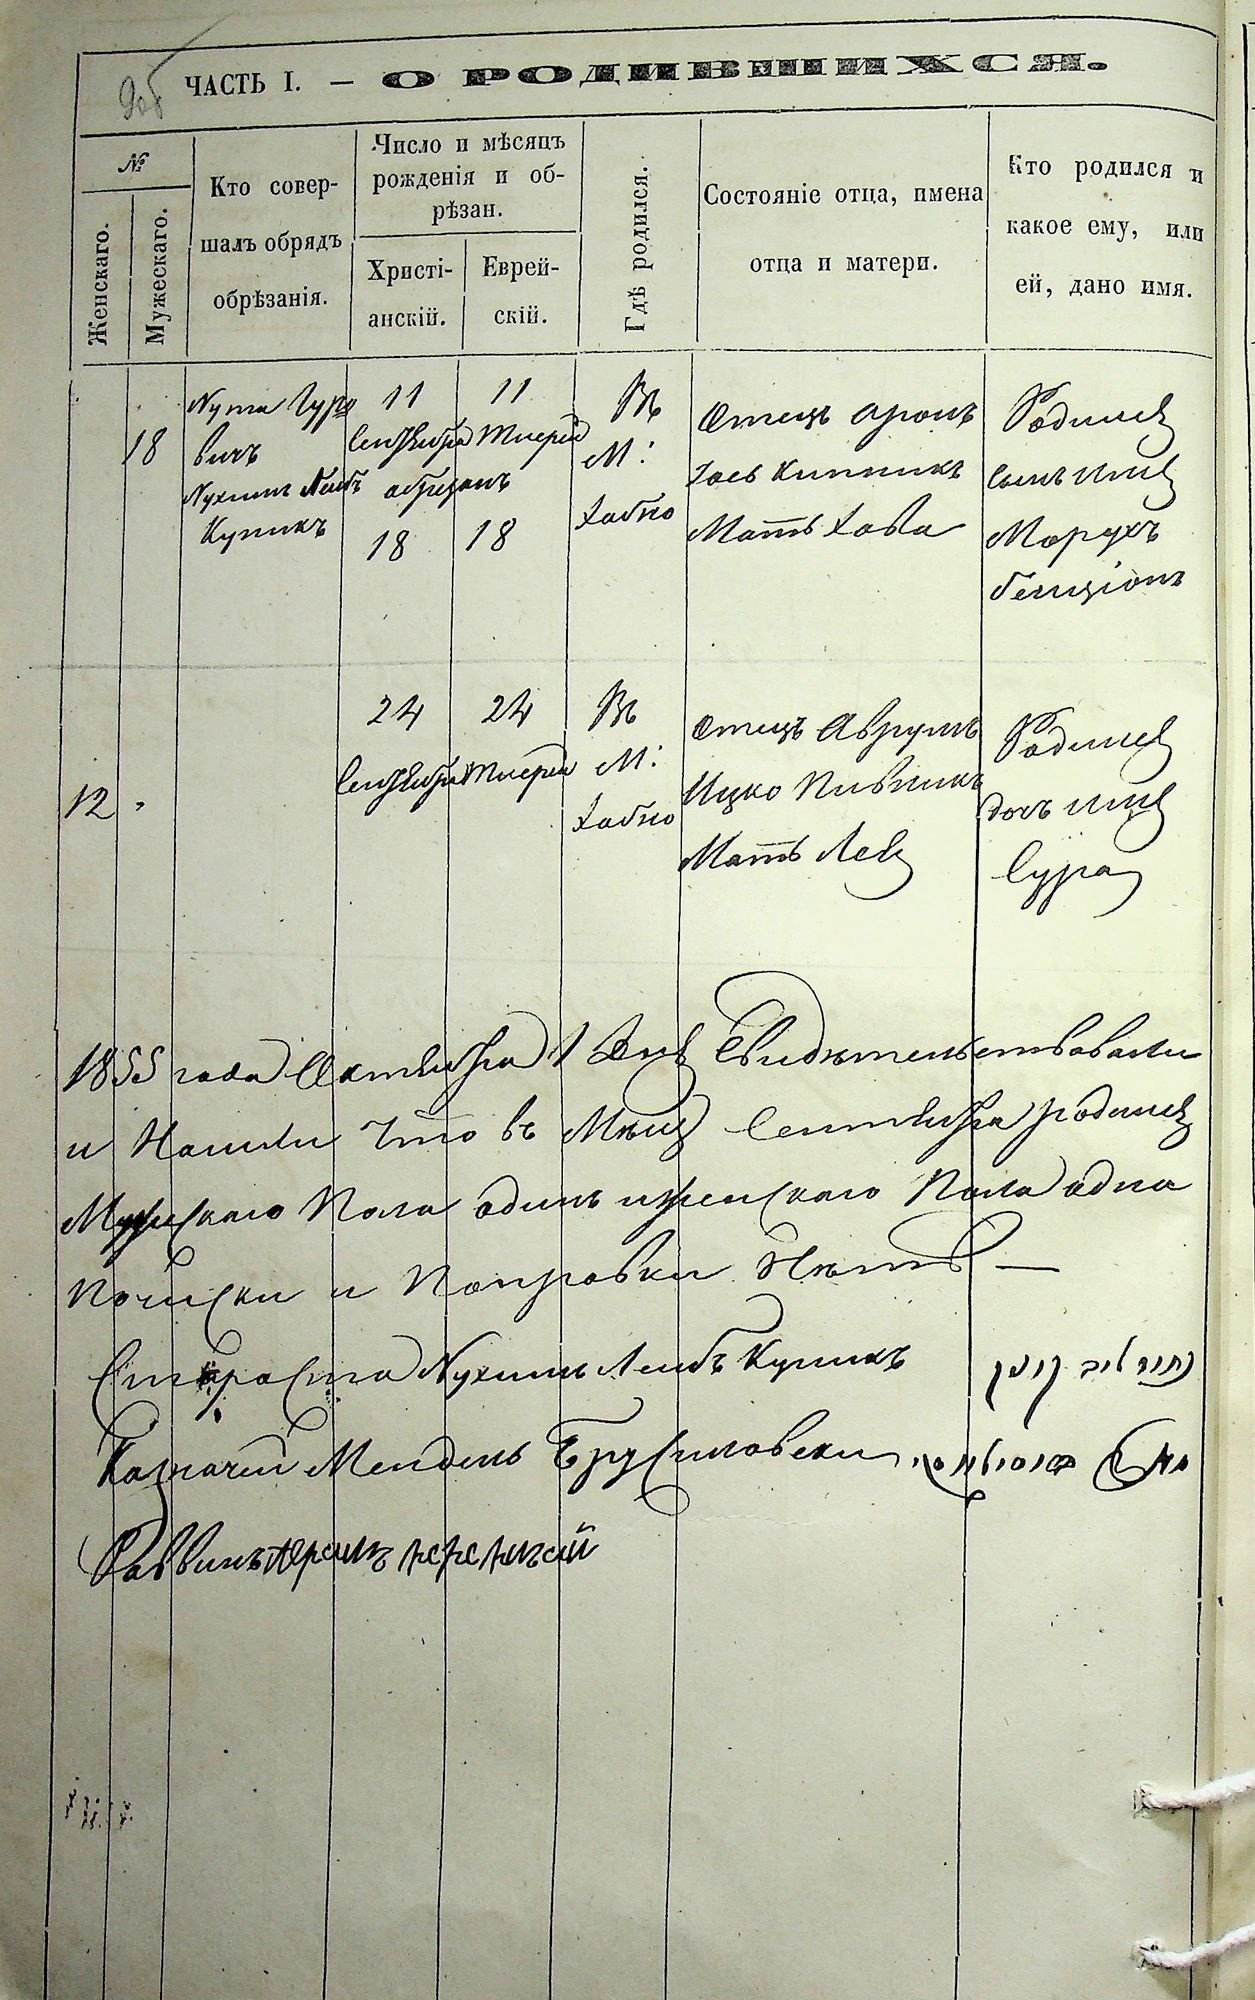 ЧАСТЬ I. — О РОДИВШИХСЯ.
№
Женскаго.
Мужескаго.
Кто совер-
шалъ обрядъ
обрѣзанія.
Число и мѣсяцъ
рожденія и об-
рѣзан.
Христі-
анскій.
Еврей-
скій.
Гдѣ родился.
Состояніе отца, имена
отца и матери.
Кто родился и
какое ему, или
ей, дано имя.
18
Нута Гуро
вичъ
Нухимъ Лейбъ
Купикъ
11
Сентября
обрѣзанъ
18
11
Тисерей
18
Въ
М:
Хабно
Отецъ Аронъ
Іось
Мать Хава
Родился
сынъ имя
Мордухъ
Бенціонъ
12
24
Сентября
24
Тисерей
Въ
М:
Хабно
Отецъ Аврумъ
Ицко Пивникъ
Мать Лея
Родился
дочь имя
Сура
1855 года Октября 1 дня Свидѣтельствовали
и нашли что въ Мѣця Сентября родился
Мужскаго Пола одинъ и женскаго Пола одна
Почиски и Поправки Нѣтъ —
Староста Нухимъ Лейбъ Купикъ
Казначей Мендель Брусиловски
Раввинъ